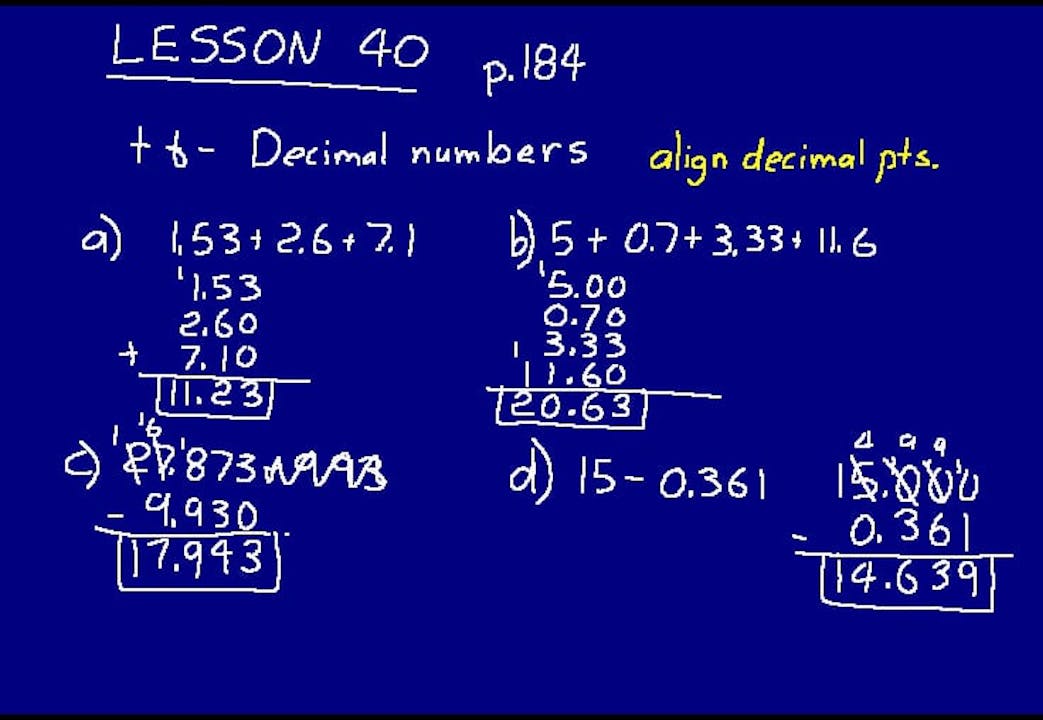 LESSON 40 p.184
+ & - Decimal numbers align decimal pts.
a) 1.53 + 2.6 + 7.1
1
1.53
2.60
+ 7.10
11.23
b) 5 + 0.7 + 3.33 + 11.6
1
5.00
0.70
3.33
1
11.60
20.63
c) 1 16 1
27.873
- 9.930
17.943
d) 15 - 0.361
4 9 9 1
15.000
- 0.361
14.639